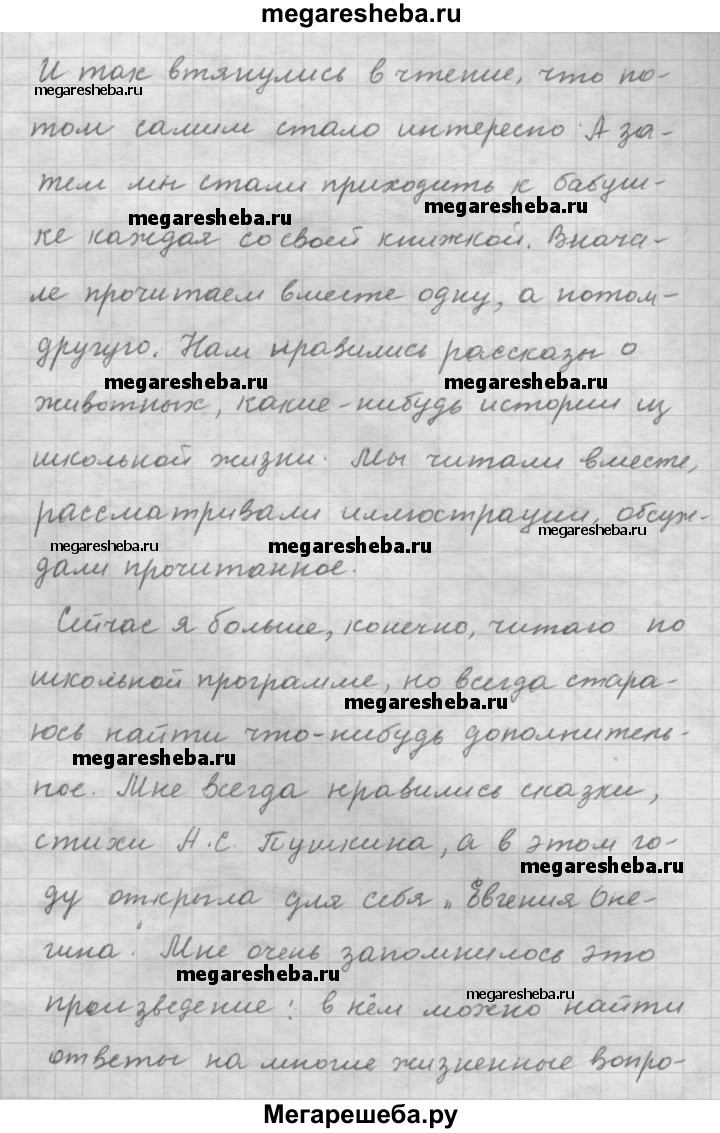 megaresheba.ru
И так втянулись в чтение, что по-
megaresheba.ru
том самим стало интересно. А за-
тем мы стали приходить к бабуш-
megaresheba.ru megaresheba.ru
ке каждая со своей книжкой. Внача-
ле прочитаем вместе одну, а потом-
другую. Нам нравились рассказы о
megaresheba.ru megaresheba.ru
животных, какие-нибудь истории из
школьной жизни. Мы читали вместе,
рассматривали иллюстрации, обсуж-
megaresheba.ru megaresheba.ru megaresheba.ru
дали прочитанное.
Сейчас я больше, конечно, читаю по
школьной программе, но всегда стара-
megaresheba.ru
юсь найти что-нибудь дополнитель-
megaresheba.ru
ное. Мне всегда нравились сказки,
стихи А.С. Пушкина, а в этом го-
megaresheba.ru
ду открыла для себя „Евгения Оне-
гина“. Мне очень запомнилось это
megaresheba.ru
произведение: в нём можно найти
megaresheba.ru
ответы на многие жизненные вопро-
Мегарешеба.ру